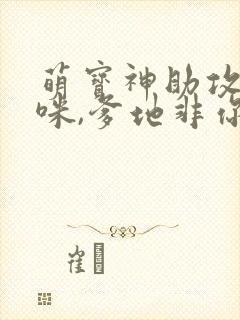 萌宝神助攻
咪,爹地非你
崔